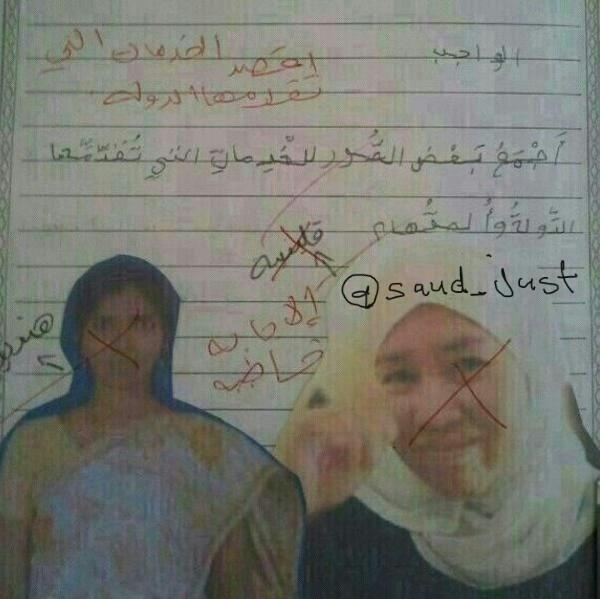 الواجب
اقصد الخدمات التي
تقدمها الدولة
أَجْمَعُ بَعْضَ الصُّور للْخِدمات التي تُقَدِّمُها
الدَّولةُ وأُلصقُها
@saud_just
الإجابه
خاطئه